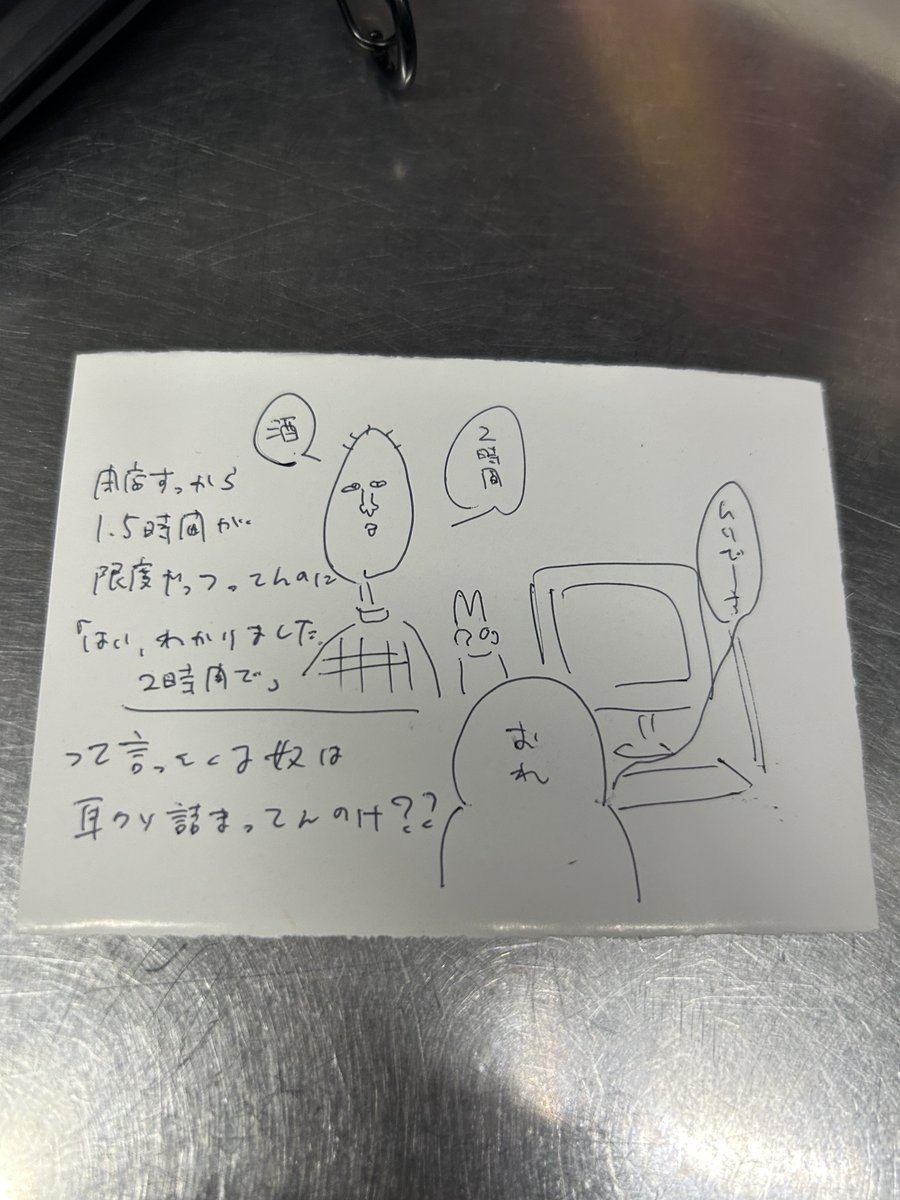 酒
2時間
閉店すっから
1.5時間が
限度やっつってんのに
「はい、わかりました。
2時間で」
って言ってくる奴は
耳クソ詰まってんのけ??
おれ